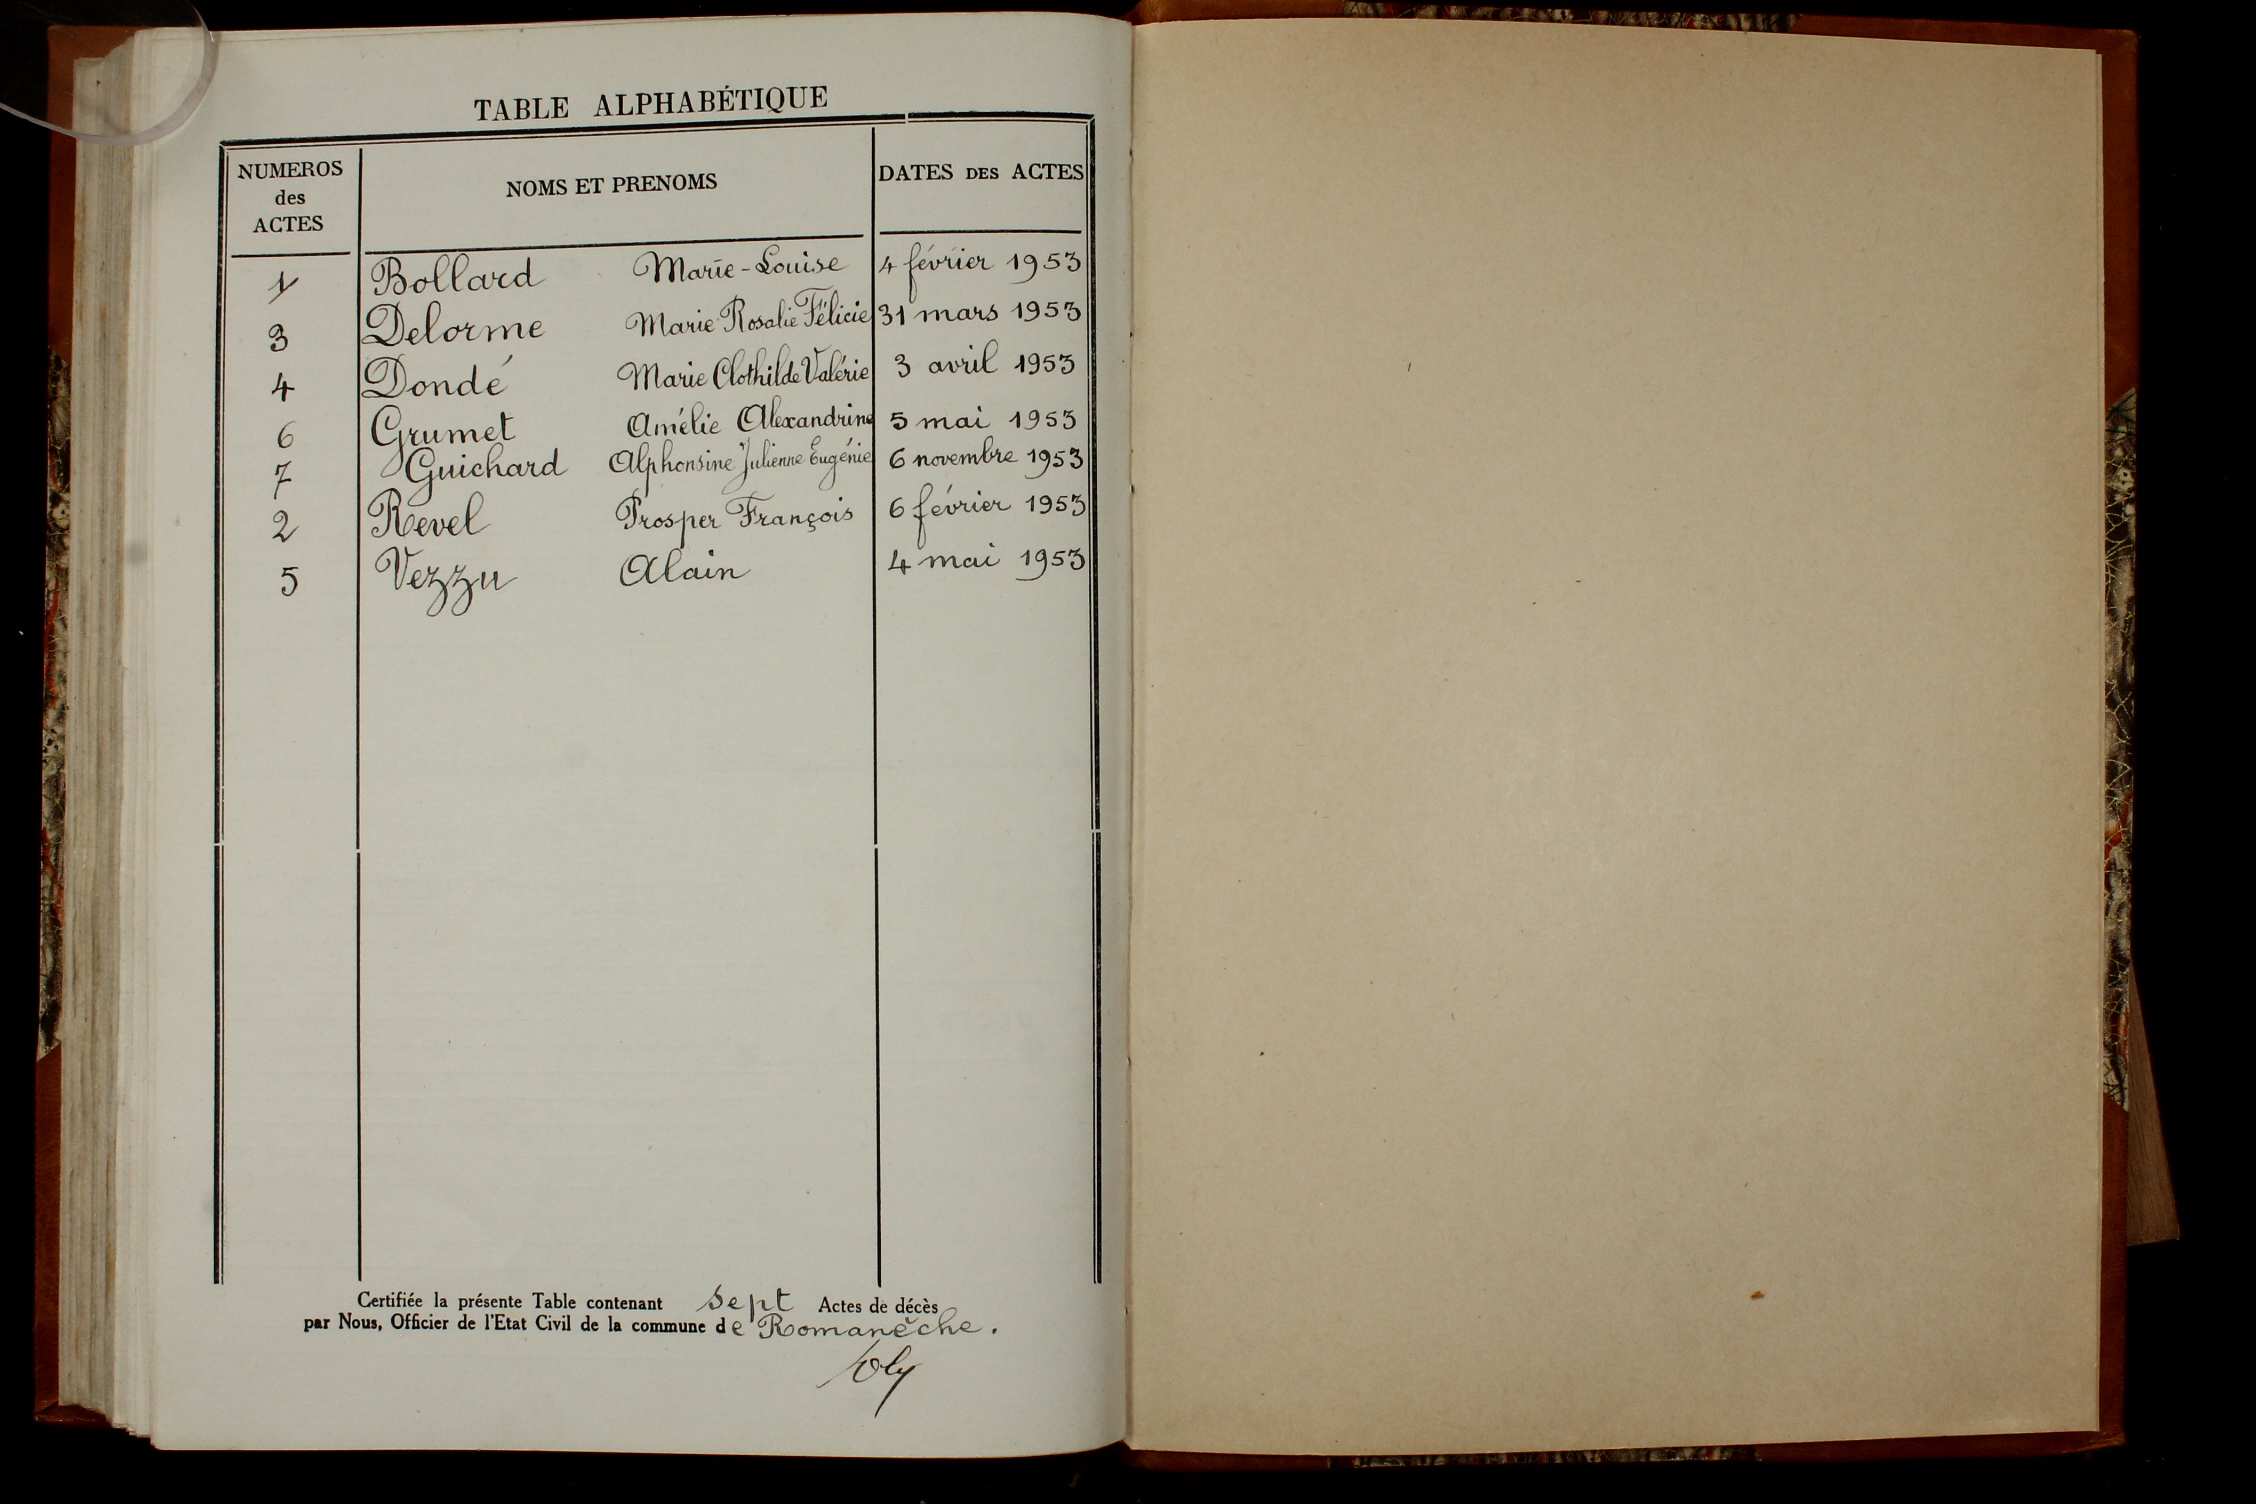 TABLE ALPHABÉTIQUE
NUMEROS des ACTES NOMS ET PRENOMS DATES DES ACTES
1 Bollard Marie-Louise 4 février 1953
3 Delorme Marie Rosalie Félicie 31 mars 1953
4 Dondé Marie Clothilde Valérie 3 avril 1953
6 Grumet Amélie Alexandrine 5 mai 1953
7 Guichard Alphonsine Julienne Eugénie 6 novembre 1953
2 Revel Prosper François 6 février 1953
5 Vezzu Alain 4 mai 1953
Certifiée la présente Table contenant sept Actes de décès
par Nous, Officier de l'Etat Civil de la commune de Romanèche.